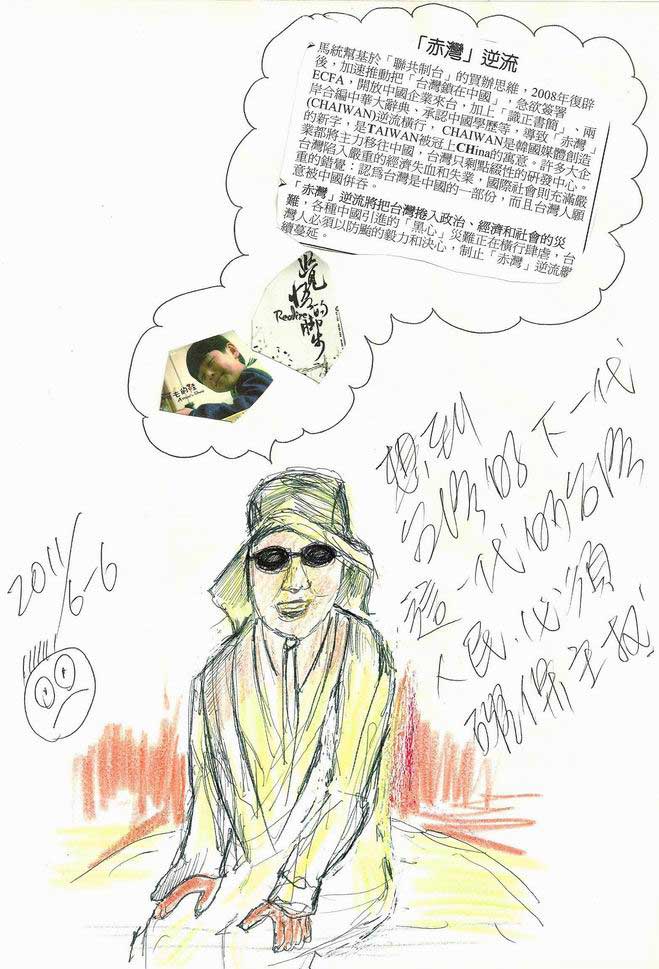 「赤灣」逆流
馬統幫基於「聯共制台」的買辦思維，2008年復辟
後，加速推動把「台灣鎖在中國」，急欲簽署
ECFA，開放中國企業來台，加上「識正書簡」，兩
岸合編中華大辭典、承認中國學歷等，導致「赤灣」
(CHAIWAN)逆流橫行， CHAIWAN是韓國媒體創造
的新字，是TAIWAN被冠上CHina的寓意。許多大企
業都將主力移往中國，台灣只剩點綴性的研發中心。
台灣陷入嚴重的經濟失血和失業，國際社會則充滿嚴
重的錯覺：認爲台灣是中國的一部份，而且台灣人願
意被中國併吞。
「赤灣」逆流將把台灣捲入政治、經濟和社會的災
難，各種中國引進的「黑心」災難正在橫行肆虐，台
灣人必須以防颱的毅力和決心，制止「赤灣」逆流繼
續蔓延。
覺悟的腳步
Realize
想到
台灣的下一代
這一代的台灣
人民必須
確保主权
2011/6-6